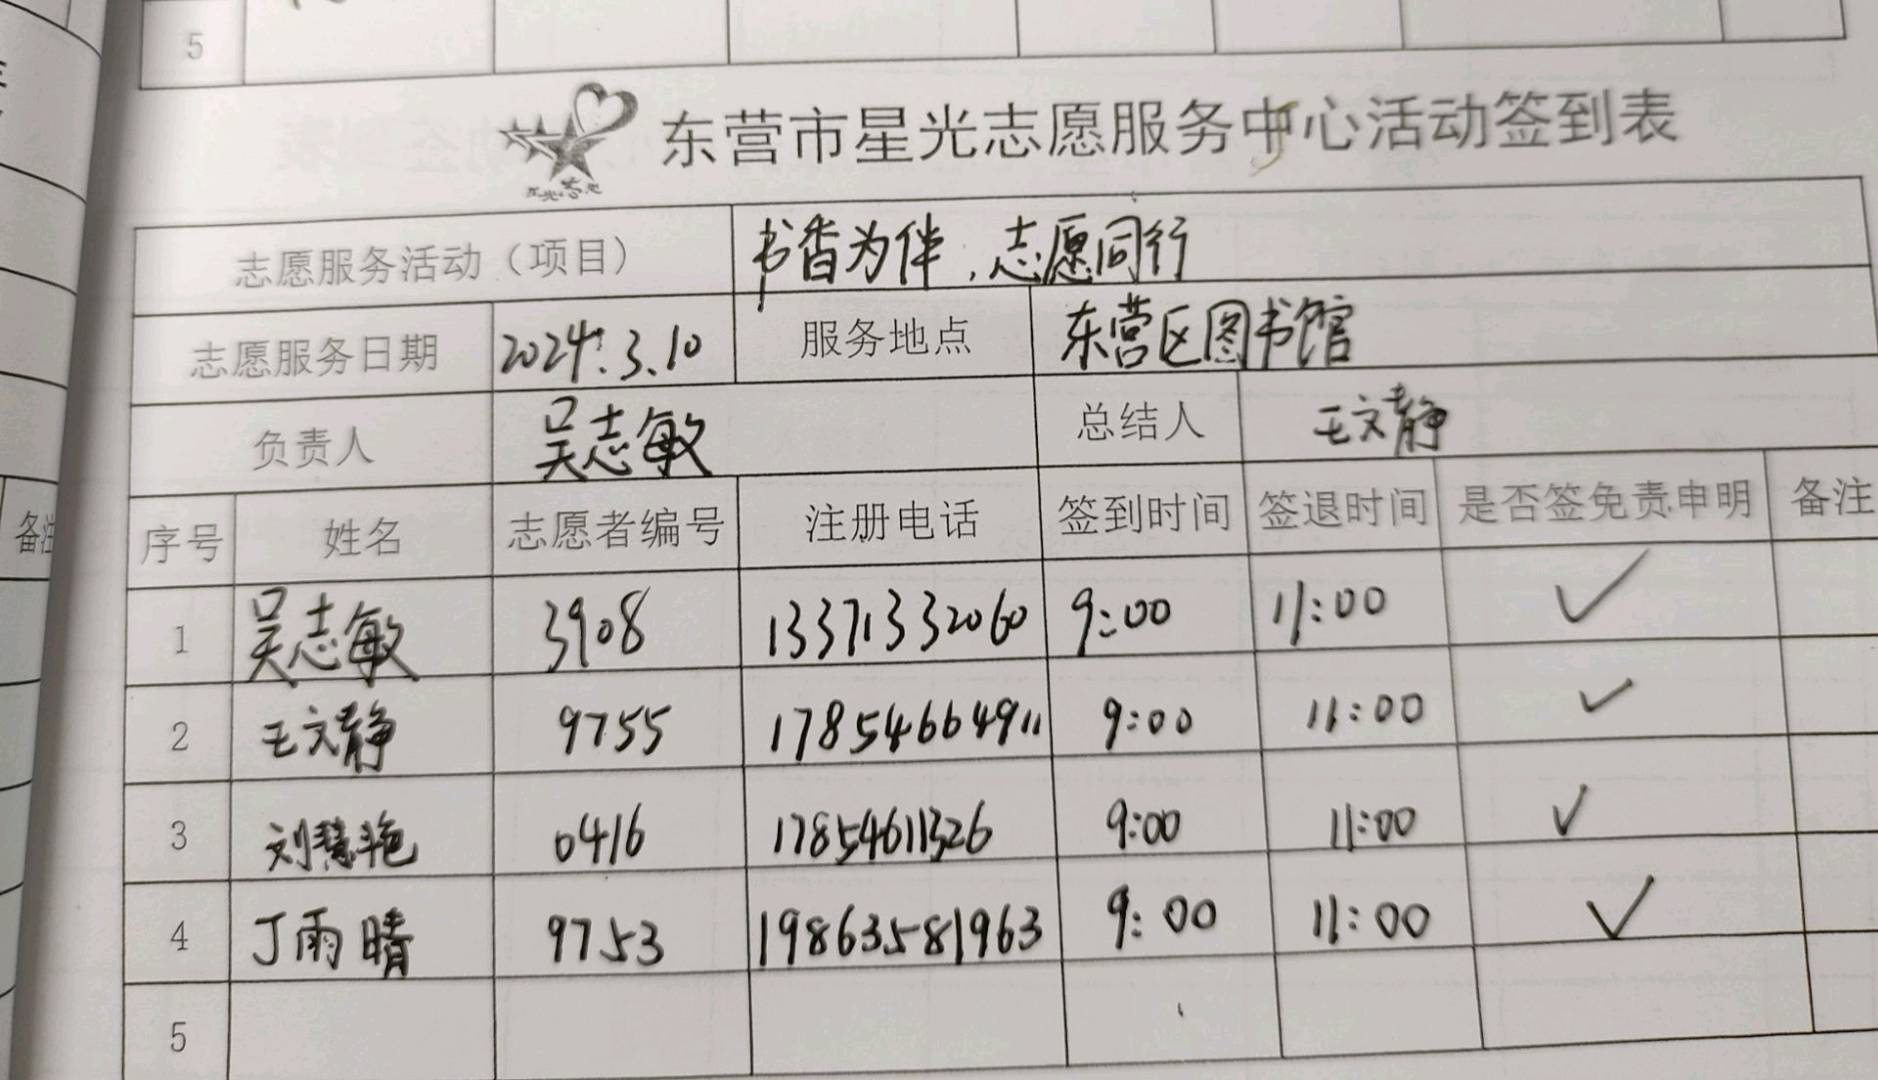 5
东营市星光志愿服务中心活动签到表
志愿服务活动（项目） 书香为伴,志愿同行
志愿服务日期 2024.3.10 服务地点 东营区图书馆
负责人 吴志敏 总结人 王文静
序号 姓名 志愿者编号 注册电话 签到时间 签退时间 是否签免责申明 备注
1 吴志敏 3908 13371332060 9:00 11:00 ✓
2 王文静 9755 17854664911 9:00 11:00 ✓
3 刘慧艳 0416 17854611326 9:00 11:00 ✓
4 丁雨晴 9753 19863581963 9:00 11:00 ✓
5
备注